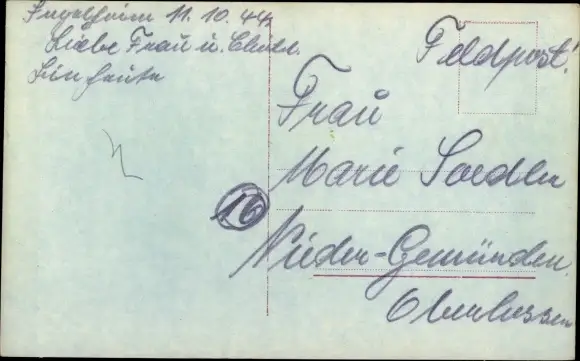 Ingelheim 11.10.44
Liebe Frau u.
Bin heute
Feldpost!
Frau
Marie
16
Nieder-Gemünden
Oberhessen